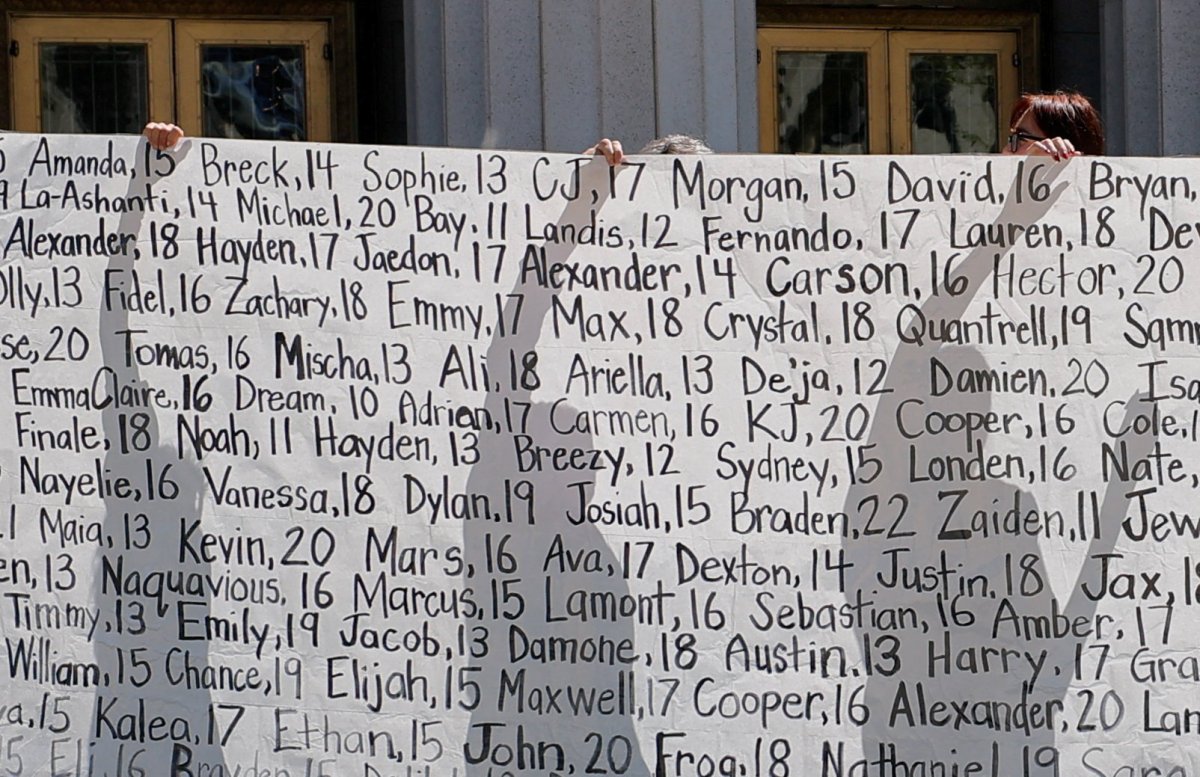 Amanda, 15 Breck, 14 Sophie, 13 CJ, 17 Morgan, 15 Davïd, 16 Bryan,
9 La-Ashanti, 14 Michael, 20 Bay, 11 Landis, 12 Fernando, 17 Lauren, 18 De
Alexander, 18 Hayden, 17 Jaedon, 17 Alexander, 14 Carson, 16 Hector, 20
olly, 13 Fidel, 16 Zachary, 18 Emmy, 17 Max, 18 Crystal, 18 Quantrell, 19 Sam
se, 20 Tomas, 16 Mischa, 13 Ali, 18 Ariella, 13 De'ja, 12 Damien, 20 Isa
EmmaClaire, 16 Dream, 10 Adrian, 17 Carmen, 16 KJ, 20 Cooper, 16 Cole, 1
Finale, 18 Noah, 11 Hayden, 13 Breezy, 12 Sydney, 15 Londen, 16 Nate,
Nayelie, 16 Vanessa, 18 Dylan, 19 Josiah, 15 Braden, 22 Zaiden, 11 Jew
1 Maia, 13 Kevin, 20 Mars, 16 Ava, 17 Dexton, 14 Justin, 18 Jax, 18
en, 13 Naquavious, 16 Marcus, 15 Lamont, 16 Sebastian, 16 Amber, 17
Timmy, 13 Emily, 19 Jacob, 13 Damone, 18 Austin, 13 Harry, 17 Gra
William, 15 Chance, 19 Elijah, 15 Maxwell, 17 Cooper, 16 Alexander, 20 Lan
a, 15 Kalea, 17 Ethan, 15 John, 20 Frog, 18 Nathaniel, 19
5 Eli, 16 Brayden, 15